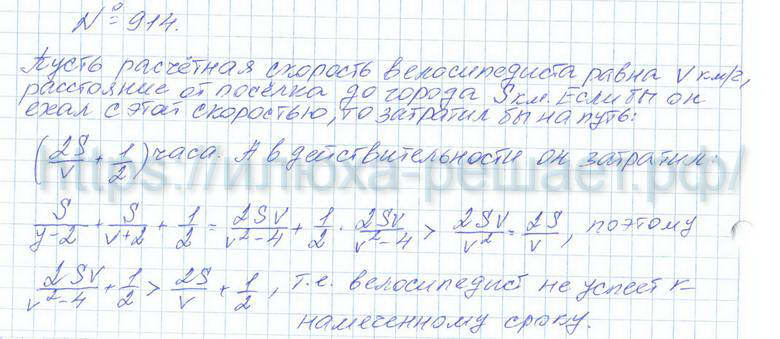 №914.
Пусть расчётная скорость велосипедиста равна v км/ч,
расстояние от посёлка до города S км. Если бы он
ехал с этой скоростью, то затратил бы на путь:
(2S/v + 1/2) часа. А в действительности он затратил:
https://илюха-решает.рф/
S/y-2 + S/v+2 + 1/2 = 2SV/v²-4 + 1/2 . 2SV/v²-4 > 2SV/v² = 2S/v, поэтому
2SV/v²-4 + 1/2 > 2S/v + 1/2, т.е. велосипедист не успеет к
намеченному сроку.